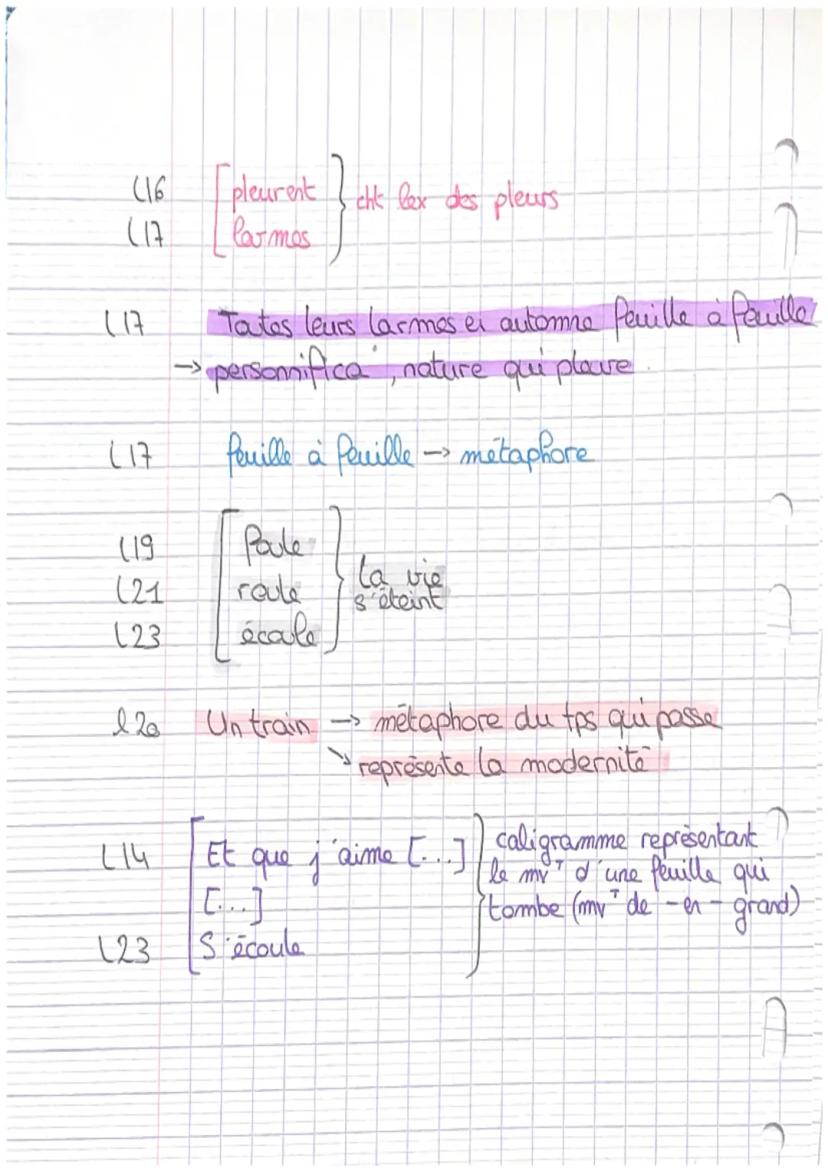 L16 [pleurent } cht lex des pleurs
L17 [larmes
L17 Toutes leurs larmes en automne feuille à feuille
→ personnifica°, nature qui pleure.
L17 feuille à feuille → métaphore
L19 [Foule
L21 roule } la vie s'éteint
L23 écoule
l 20 Un train → métaphore du tps qui passe
↘ représente la modernité
L14 [Et que j'aime [...] } caligramme représentant
le mvT d'une feuille qui
[...] tombe (mvT de - en - grand)
L23 S'écoule